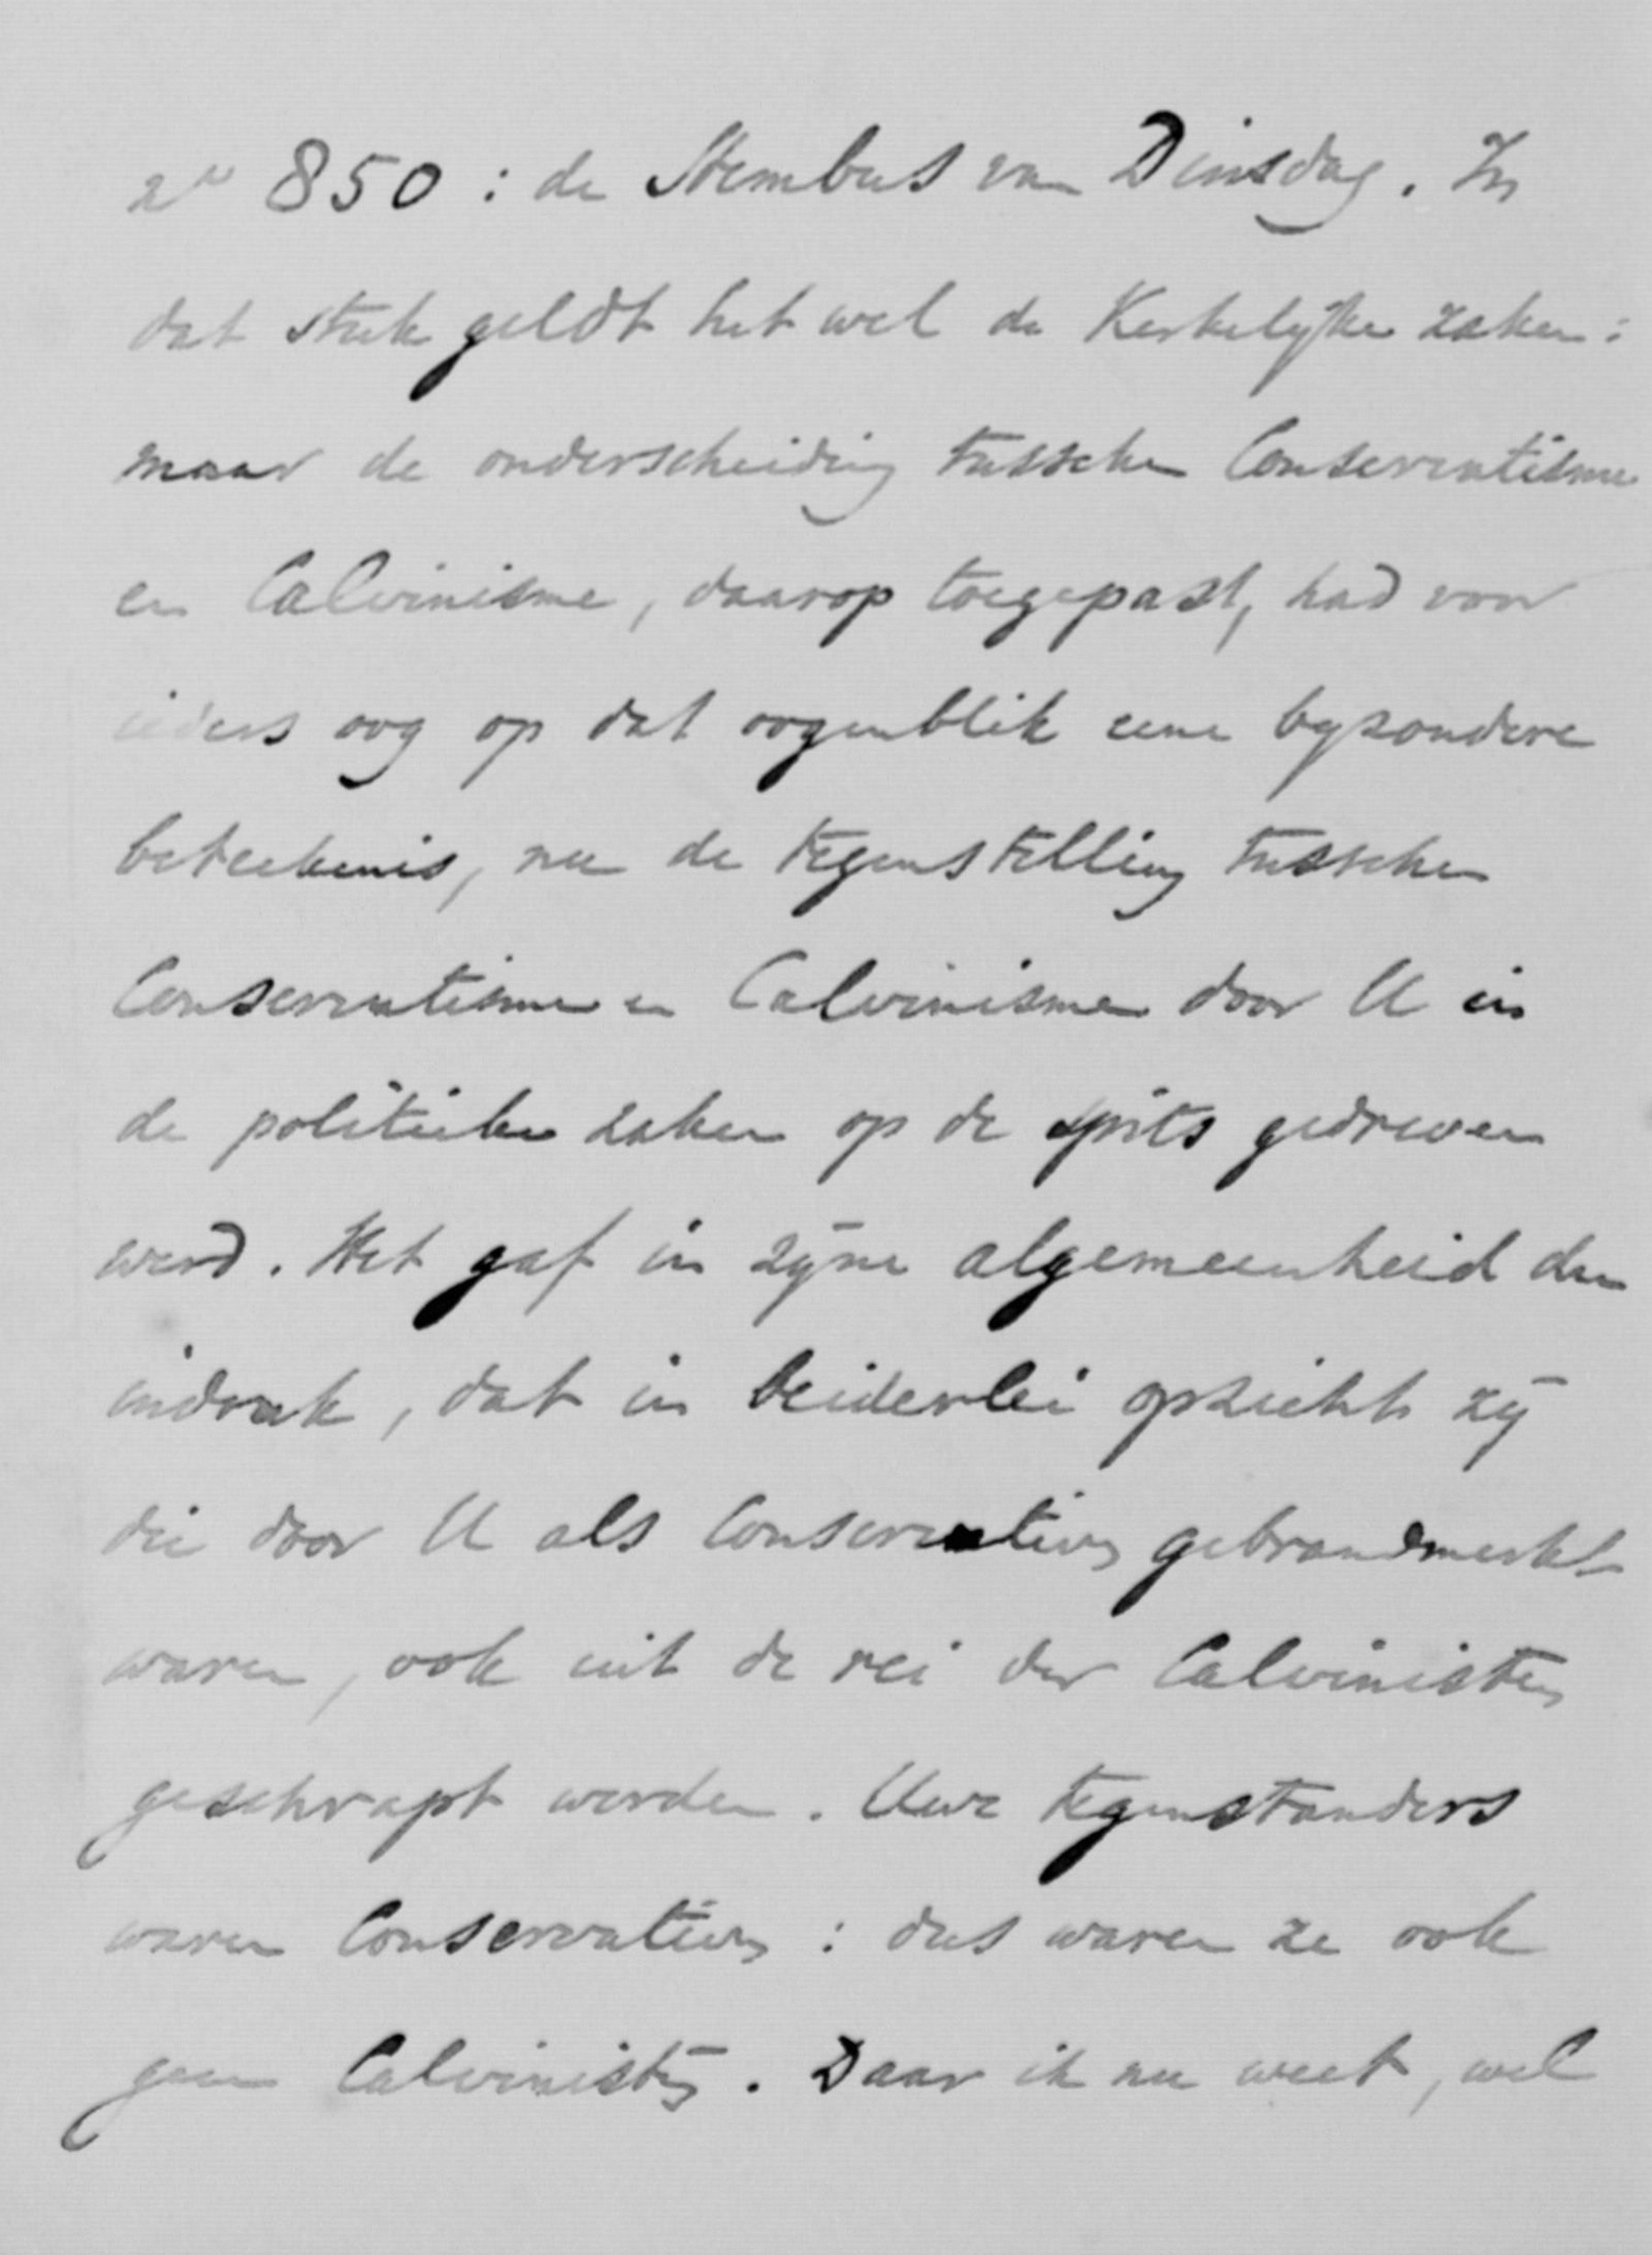 no 850 : de Stembus van Dinsdag. In
dat stuk geldt het wel de Kerkelyke zaken:
maar de onderscheiding tusschen Conservatisme
en Calvinisme, daarop toegepast, had voor
ieders oog op dat oogenblik eene byzondere
beteekenis, nu de tegenstelling tusschen
Conservatisme en Calvinisme door U in
de politieke zaken op de spits gedreven
werd. Het gaf in zyne algemeenheid den
indruk, dat in beiderlei opzicht zy
die door U als Conservatieven gebrandmerkt
waren, ook uit de rei der Calvinisten
geschrapt werden. Uwe tegenstanders
waren Conservatieven : dus waren ze ook
geen Calvinisten. Daar ik nu weet, wel